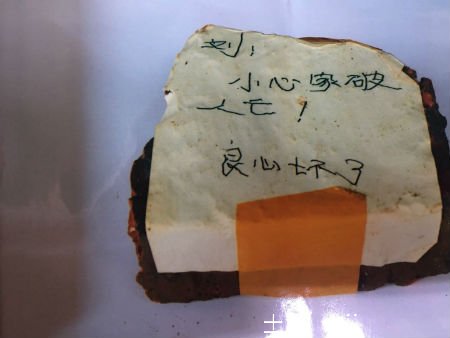 刘：
小心家破
人亡！
良心坏了